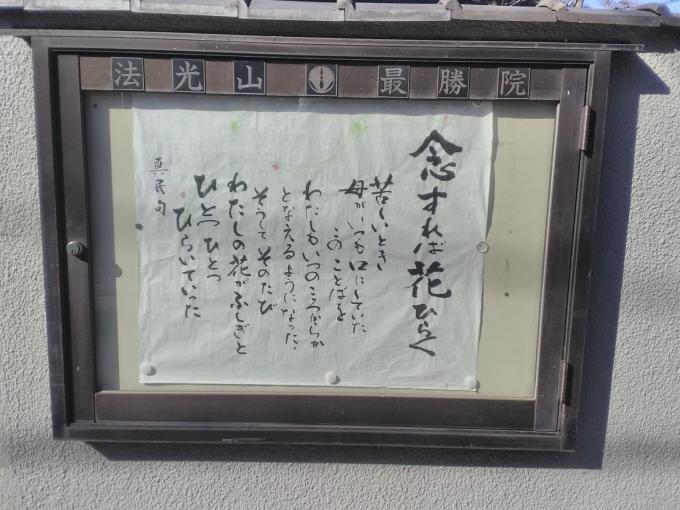 法光山 最勝院
念ずれば花ひらく
苦しいとき
母がいつも口にしていた
このことばを
わたしもいつのころからか
となえるようになった.
そうして そのたび
わたしの花がふしぎと
ひとつひとつ
ひらいていった
真民句